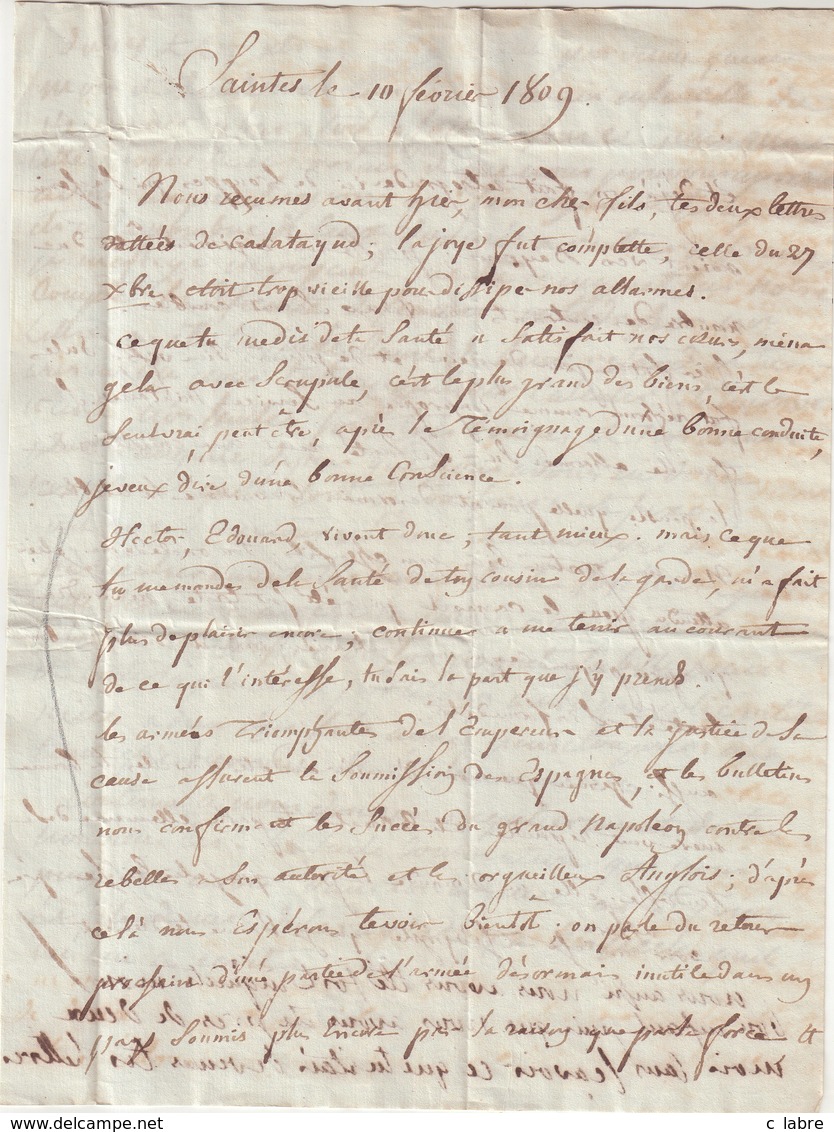 Saintes le 10 février 1809.
Nous reçumes avant hier, mon cher fils, tes deux lettres
dattées de Calatayud; la joye fut complette, celle du 27
xbre etoit trop vieille pour dissiper nos allarmes.
ce que tu me dis de ta Santé a Satisfait nos cœurs, ména
gela avec Scrupule, c'est le plus grand des biens, c'est le
Seul vrai peut être, après le Temoignage d'une bonne conduite,
je veux dire d'une bonne Conscience.
Hector, Edouard, vivent donc, tant mieux. mais ce que
tu me mandes de la Santé de ton cousin de la garde, m'a fait
plus de plaisir encore; continues a me tenir au courant
de ce qui l'intéresse, tu Sais la part que j'y prends.
les armées Triomphantes de l'Empereur et la justice de Sa
cause assurent la Soumission des Espagnes, et les bulletins
nous confirment les Succès du grand Napoléon contre les
rebelles a Son autorité et les orgueilleux Anglois; d'après
celà nous Espérons te voir bientôt. on parle du retour
prochain d'une partie de l'armée désormais inutile dans un
pays Soumis plus Encore par la raison que par la force et
c labre